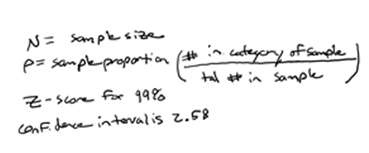 N = sample size
P = sample proportion (# in category of sample / total # in sample)
Z-score for 99%
confidence interval is 2.58